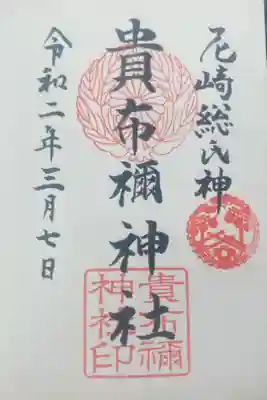 尼崎総氏神
貴布禰神社
貴布禰
神社印
令和二年三月七日